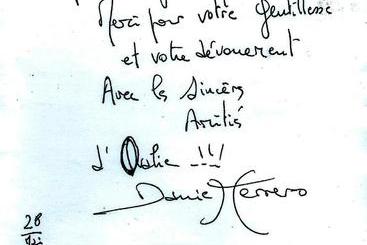 Merci pour votre Gentillesse
et votre dévouement
Avec les Sincères
Amitiés
d'Ovalie !!!
Daniel Herrero
28